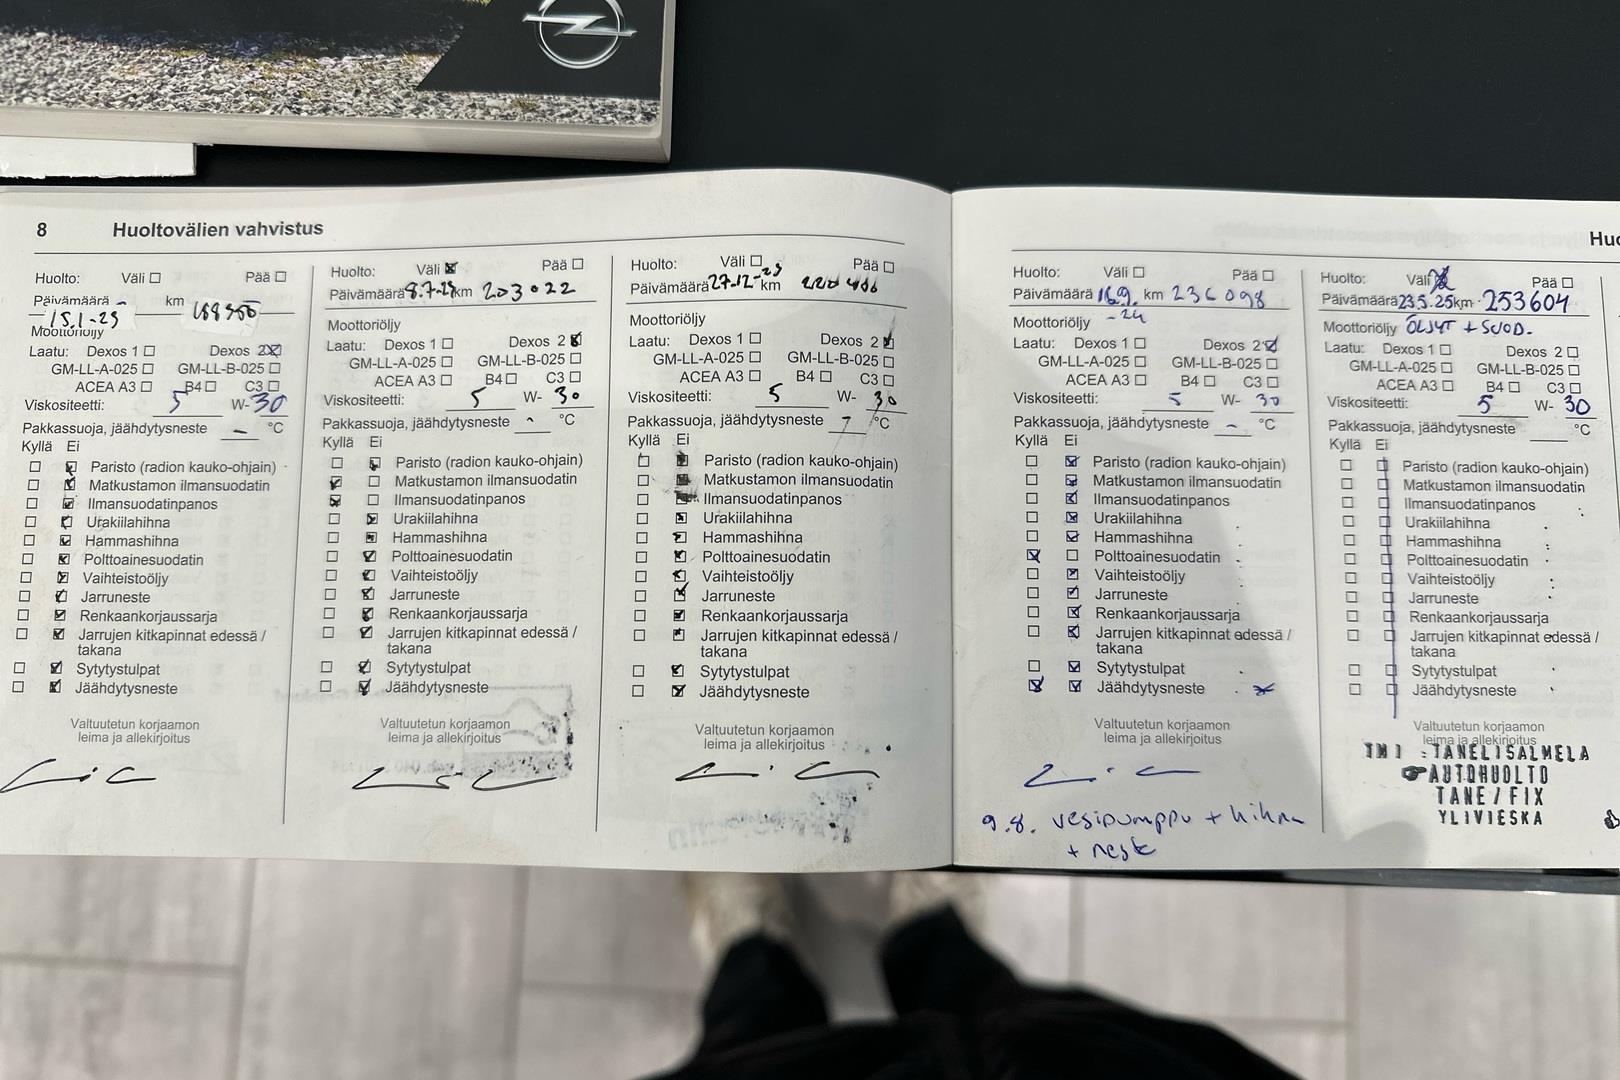 8 Huoltovälien vahvistus
Huolto: Väli ☐ Pää ☐
Päivämäärä km
15.1-23
Moottoriöljy
Laatu: Dexos 1 ☐ Dexos 2 ☒
GM-LL-A-025 ☐ GM-LL-B-025 ☐
ACEA A3 ☐ B4 ☐ C3 ☐
Viskositeetti: 5 W- 30
Pakkassuoja, jäähdytysneste - °C
Kyllä Ei
☐ ☒ Paristo (radion kauko-ohjain)
☐ ☒ Matkustamon ilmansuodatin
☐ ☒ Ilmansuodatinpanos
☐ ☒ Urakiilahihna
☐ ☒ Hammashihna
☐ ☒ Polttoainesuodatin
☐ ☒ Vaihteistoöljy
☐ ☒ Jarruneste
☐ ☒ Renkaankorjaussarja
☐ ☒ Jarrujen kitkapinnat edessä /
takana
☐ ☒ Sytytystulpat
☐ ☒ Jäähdytysneste
Valtuutetun korjaamon
leima ja allekirjoitus
Huolto: Väli ☒ Pää ☐
Päivämäärä 8.7-23 km 203022
Moottoriöljy
Laatu: Dexos 1 ☐ Dexos 2 ☒
GM-LL-A-025 ☐ GM-LL-B-025 ☐
ACEA A3 ☐ B4 ☐ C3 ☐
Viskositeetti: 5 W- 30
Pakkassuoja, jäähdytysneste - °C
Kyllä Ei
☐ ☒ Paristo (radion kauko-ohjain)
☒ ☐ Matkustamon ilmansuodatin
☒ ☐ Ilmansuodatinpanos
☐ ☒ Urakiilahihna
☐ ☒ Hammashihna
☐ ☒ Polttoainesuodatin
☐ ☒ Vaihteistoöljy
☐ ☒ Jarruneste
☐ ☒ Renkaankorjaussarja
☐ ☒ Jarrujen kitkapinnat edessä /
takana
☐ ☒ Sytytystulpat
☐ ☒ Jäähdytysneste
Valtuutetun korjaamon
leima ja allekirjoitus
Huolto: Väli ☐ Pää ☐
Päivämäärä 27.12-23 km
Moottoriöljy
Laatu: Dexos 1 ☐ Dexos 2 ☒
GM-LL-A-025 ☐ GM-LL-B-025 ☐
ACEA A3 ☐ B4 ☐ C3 ☐
Viskositeetti: 5 W- 30
Pakkassuoja, jäähdytysneste - °C
Kyllä Ei
☐ ☒ Paristo (radion kauko-ohjain)
☐ ☒ Matkustamon ilmansuodatin
☐ ☒ Ilmansuodatinpanos
☐ ☒ Urakiilahihna
☐ ☒ Hammashihna
☐ ☒ Polttoainesuodatin
☐ ☒ Vaihteistoöljy
☐ ☒ Jarruneste
☐ ☒ Renkaankorjaussarja
☐ ☒ Jarrujen kitkapinnat edessä /
takana
☐ ☒ Sytytystulpat
☐ ☒ Jäähdytysneste
Valtuutetun korjaamon
leima ja allekirjoitus
Huolto: Väli ☐ Pää ☐
Päivämäärä 16.9. km 236098
Moottoriöljy -24
Laatu: Dexos 1 ☐ Dexos 2 ☒
GM-LL-A-025 ☐ GM-LL-B-025 ☐
ACEA A3 ☐ B4 ☐ C3 ☐
Viskositeetti: 5 W- 30
Pakkassuoja, jäähdytysneste - °C
Kyllä Ei
☐ ☒ Paristo (radion kauko-ohjain)
☐ ☒ Matkustamon ilmansuodatin
☐ ☒ Ilmansuodatinpanos
☐ ☒ Urakiilahihna
☐ ☒ Hammashihna
☒ ☐ Polttoainesuodatin
☐ ☒ Vaihteistoöljy
☐ ☒ Jarruneste
☐ ☒ Renkaankorjaussarja
☐ ☒ Jarrujen kitkapinnat edessä /
takana
☐ ☒ Sytytystulpat
☒ ☒ Jäähdytysneste *
Valtuutetun korjaamon
leima ja allekirjoitus
9.8. vesipumppu + hihna
+ neste
Huo
Huolto: Väli ☒ Pää ☐
Päivämäärä 23.5.25 km 253604
Moottoriöljy ÖLJYT + SUOD.
Laatu: Dexos 1 ☐ Dexos 2 ☐
GM-LL-A-025 ☐ GM-LL-B-025 ☐
ACEA A3 ☐ B4 ☐ C3 ☐
Viskositeetti: 5 W- 30
Pakkassuoja, jäähdytysneste °C
Kyllä Ei
☐ ☐ Paristo (radion kauko-ohjain)
☐ ☐ Matkustamon ilmansuodatin
☐ ☐ Ilmansuodatinpanos
☐ ☐ Urakiilahihna
☐ ☐ Hammashihna
☐ ☐ Polttoainesuodatin
☐ ☐ Vaihteistoöljy
☐ ☐ Jarruneste
☐ ☐ Renkaankorjaussarja
☐ ☐ Jarrujen kitkapinnat edessä /
takana
☐ ☐ Sytytystulpat
☐ ☐ Jäähdytysneste
Valtuutetun korjaamon
leima ja allekirjoitus
TMI : TANELI SALMELA
AUTOHUOLTO
TANE/FIX
YLIVIESKA